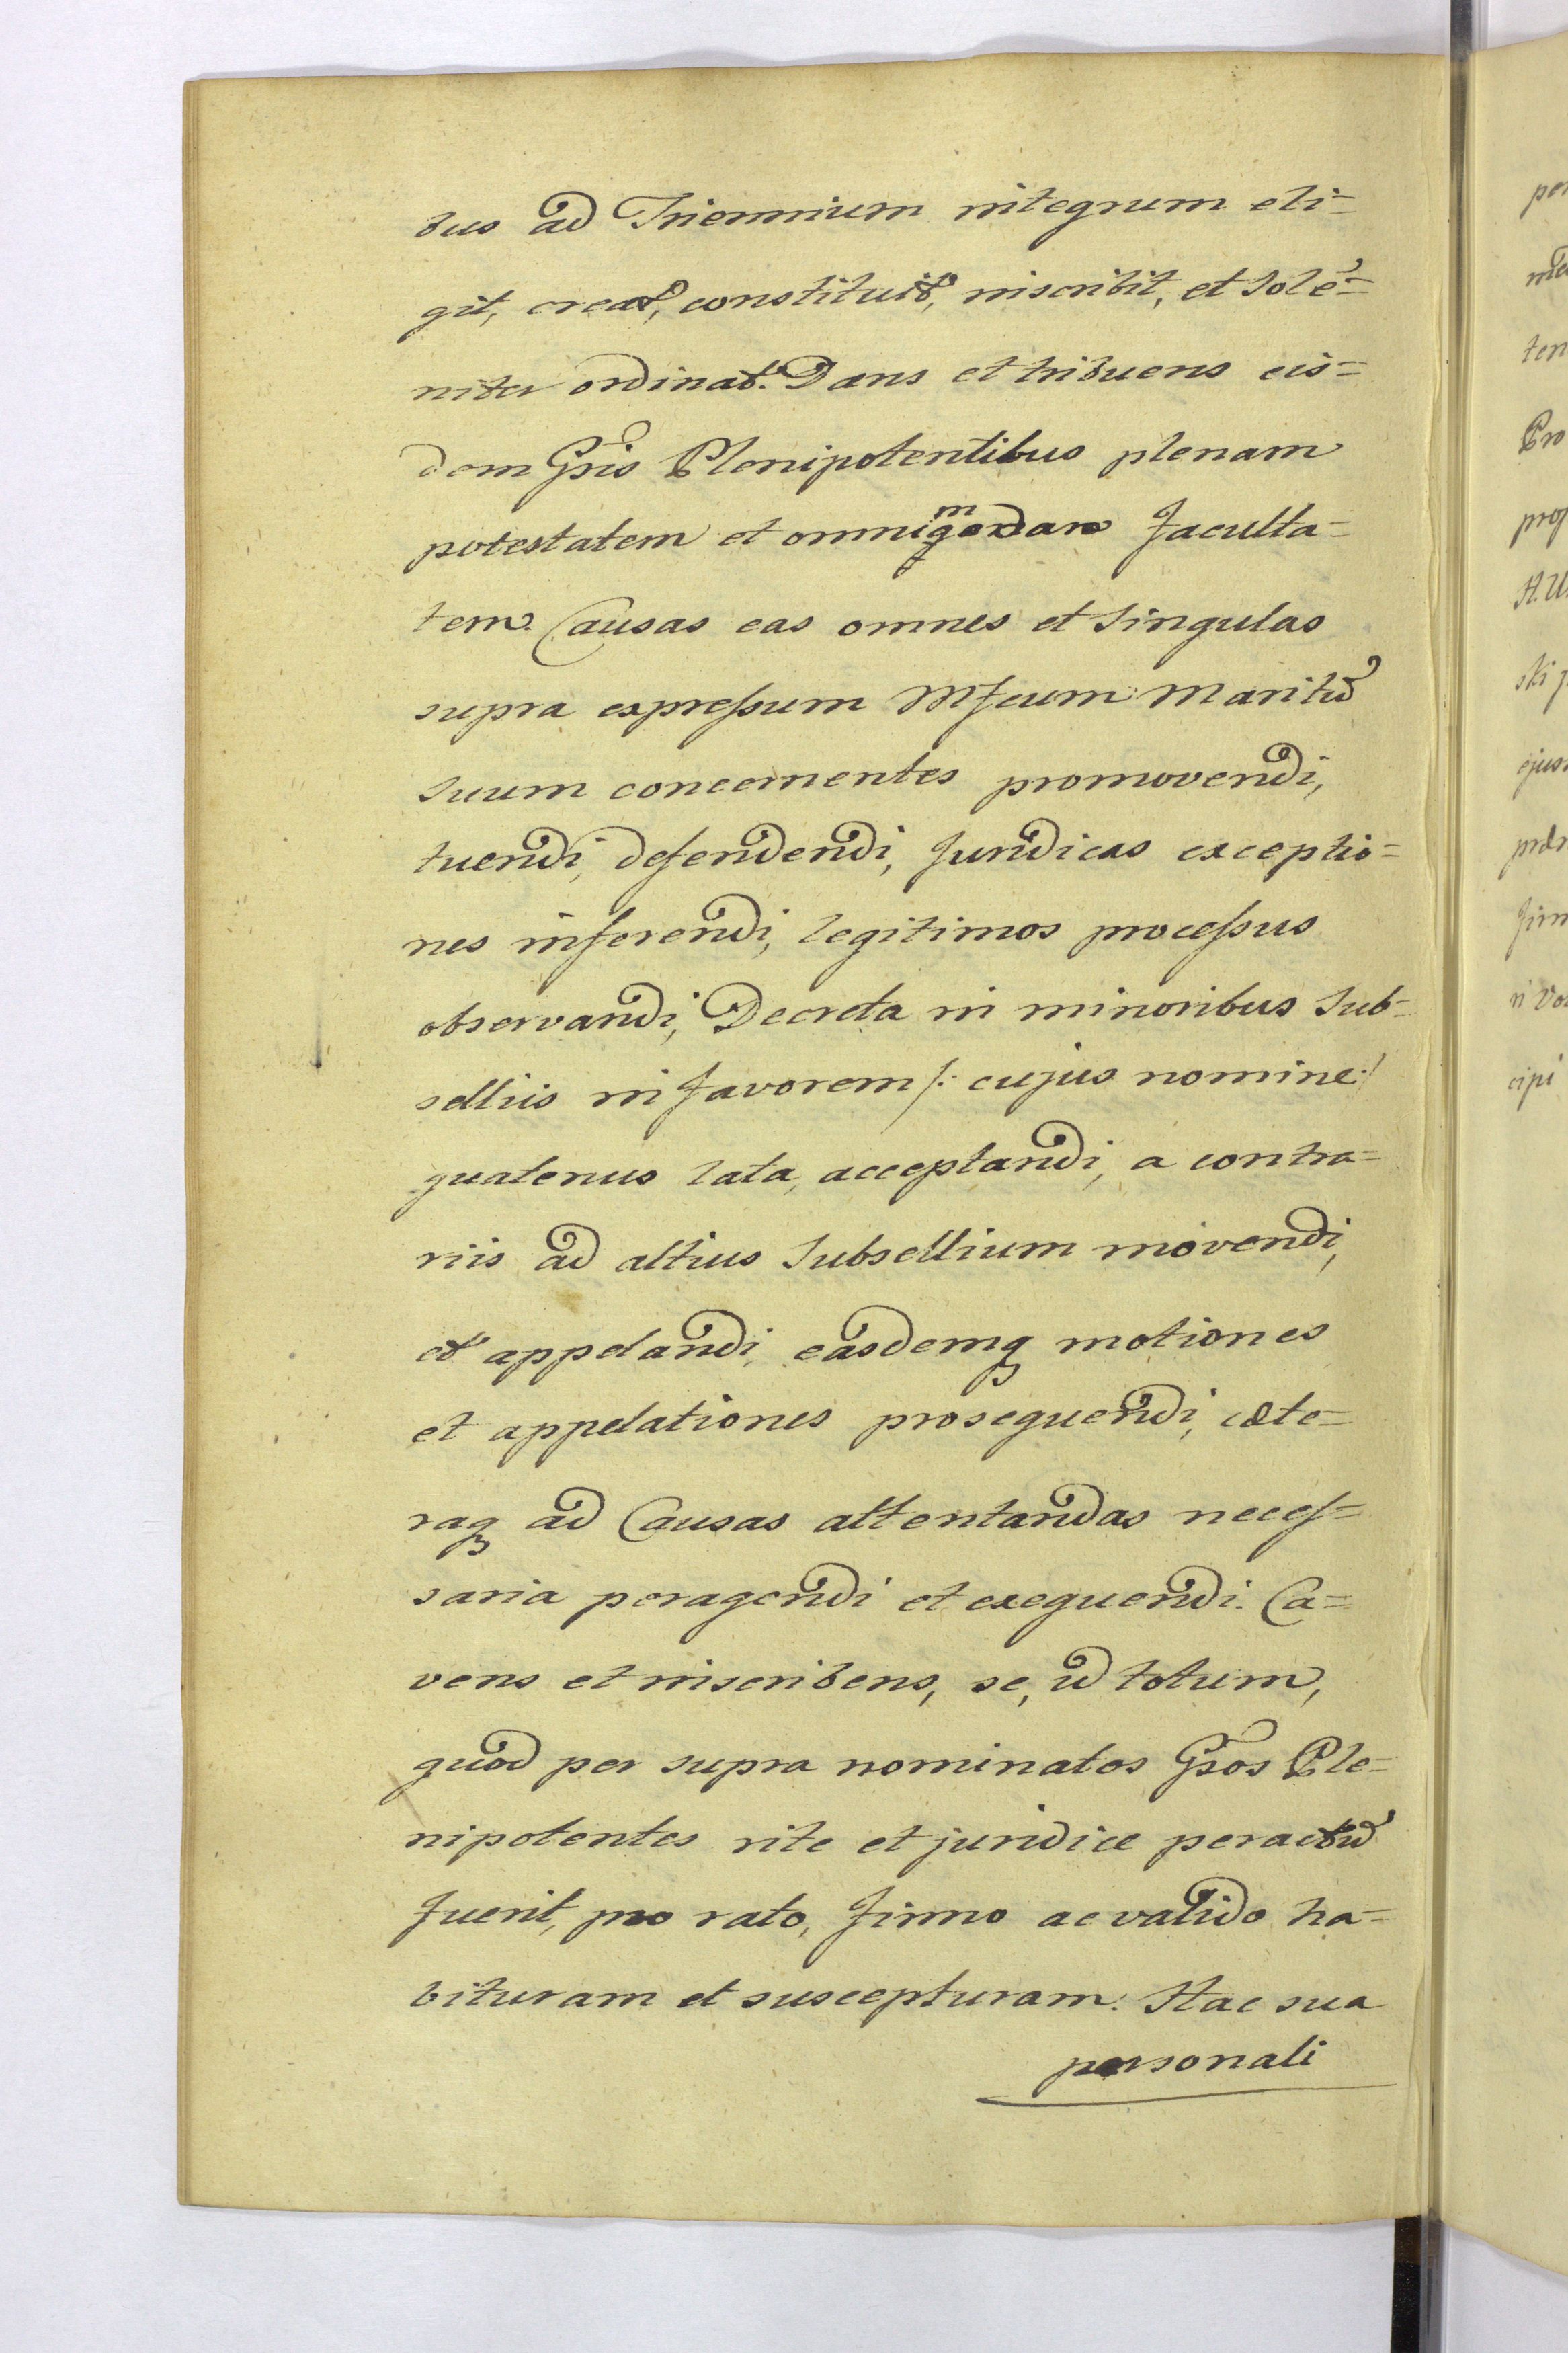 bus ad Triennium integrum eli=
git, creat, constituit, inscribit, et Solē=
niter ordinat. Dans et tribuens eis=
dem Gsis Plenipotentibus plenam
potestatem et omnigmodam faculta=
tem. Causas eas omnes et Singulas
supra expressum Mfcum Maritū
Suum concernentes promovendi,
tuendi, defendendi, Juridicas exceptio=
nes inferendi, legitimos processus
observandi, Decreta in minoribus Sub=
selliis in favorem /: cujus nomine :/
quatenus lata, acceptandi, a contra=
riis ad altius Subsellium movendi,
et appelandi, easdemq motiones
et appelationes prosequendi, cæte=
raq ad Causas attentandas neces=
saria peragendi et exequendi. Ca=
vens et inscribens, se, id totum,
quod per supra nominatos Gsos Ple=
nipotentes rite et juridice peractū
fuerit, pro rato, firmo ac valido ha=
bituram et suscepturam. Hac sua
personali
per
ten
Pro
prop
H.U.
ski
ejus
præ
firm
cipi